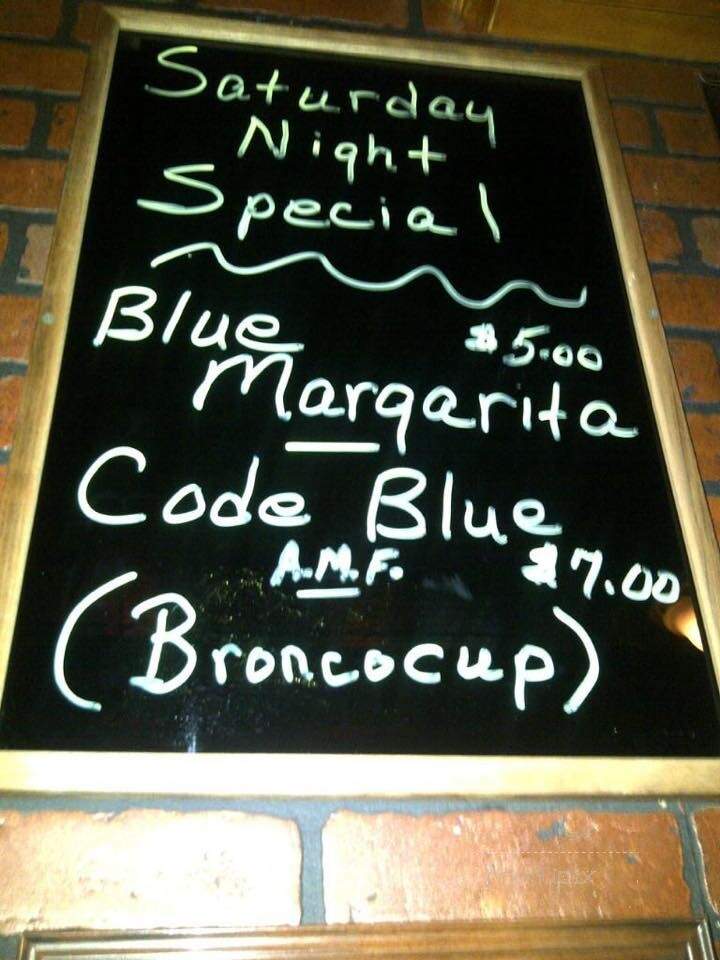 Saturday
Night
Special
Blue $5.00
Margarita
Code Blue
A.M.F. $7.00
(Broncocup)